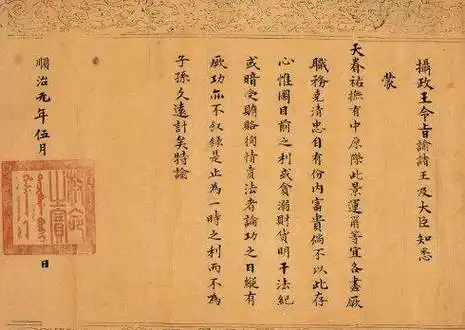 攝政王令旨諭諸王及大臣知悉
蒙
天眷祐撫有中原際此景運爾等宜各盡厥
職務克清忠自有份内富貴倘不以此存
心惟圖目前之利或貪溺財貨明干法紀
或暗受賄賂徇情賣法者論功之日縱有
厥功亦不叙録是止為一時之利而不為
子孫久遠計矣特諭
順治元年伍月
日
制誥之寶